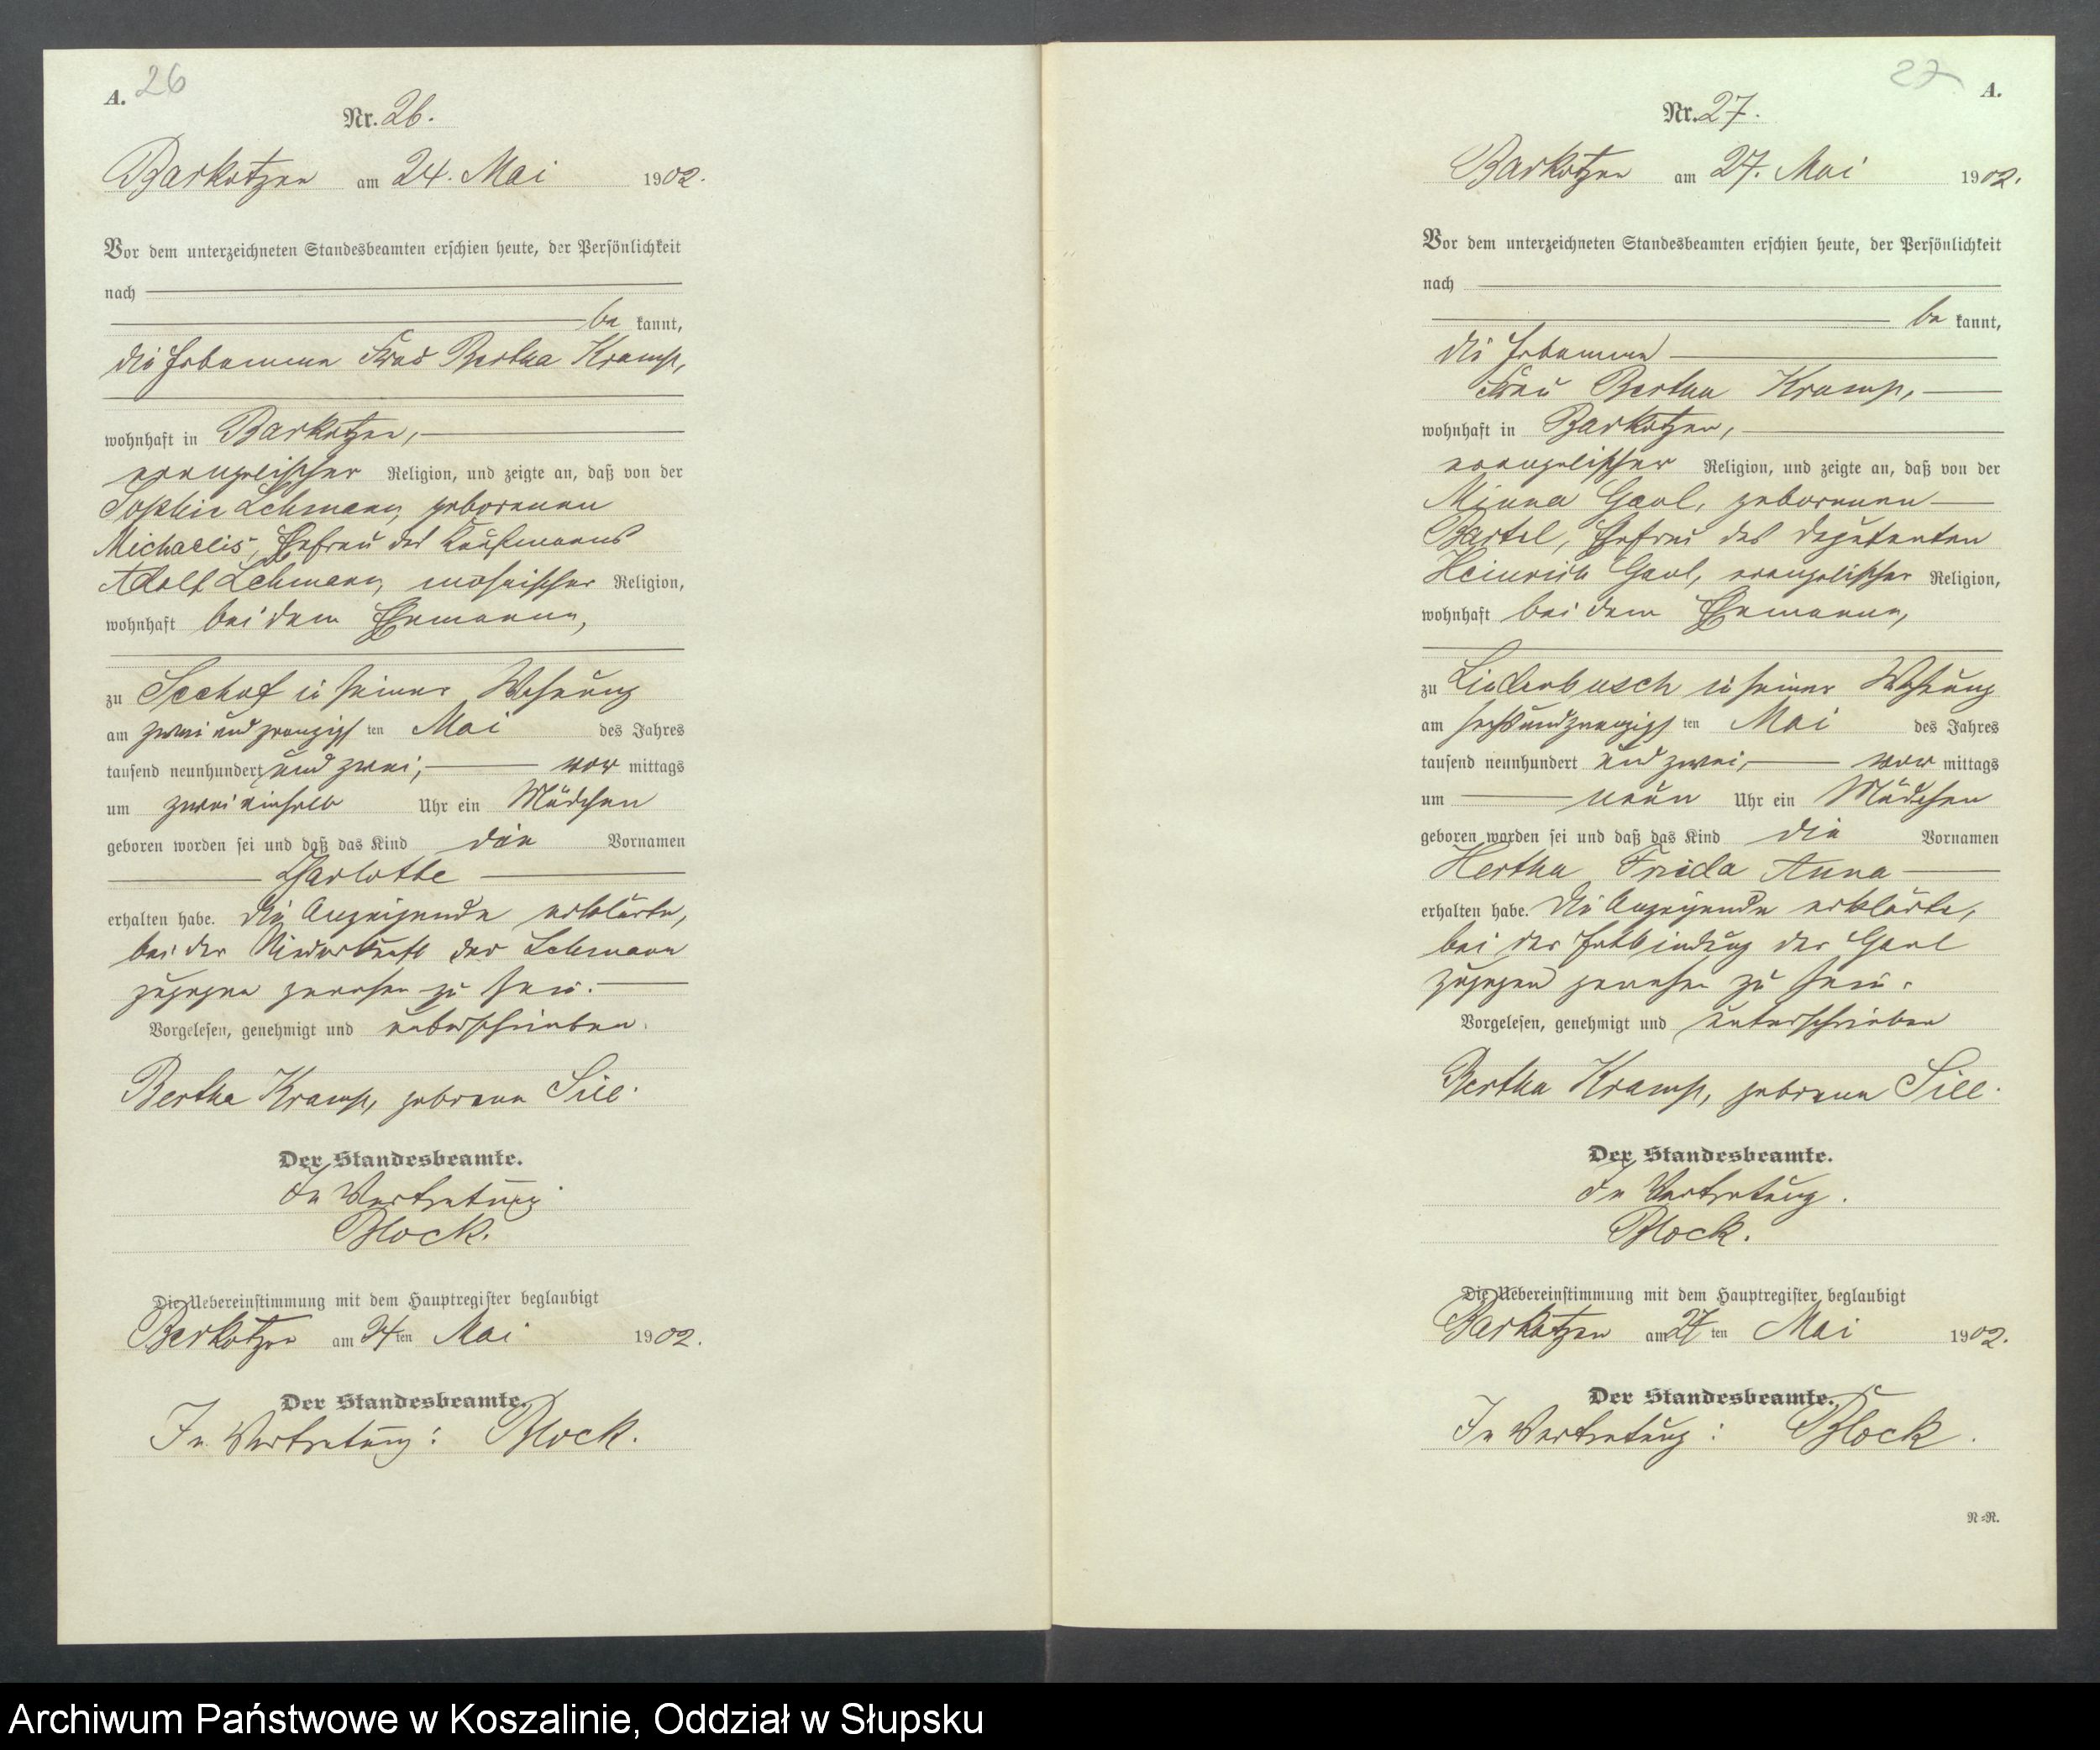 A. 26
Nr. 26.
Barkotzen am 24. Mai 1902.
Vor dem unterzeichneten Standesbeamten erschien heute, der Persönlichkeit
nach
be kannt,
die Hebamme Frau Bertha Kramp,
wohnhaft in Barkotzen,
evangelischer Religion, und zeigte an, daß von der
Sophie Lehmann, geborenen
Michaelis, Ehefrau des Kaufmanns
Adolf Lehmann, mosaischer Religion,
wohnhaft bei dem Ehemanne,
zu Seehof in seiner Wohnung
am zwei und zwanzigsten Mai des Jahres
tausend neunhundert und zwei, vor mittags
um zwei einhalb Uhr ein Mädchen
geboren worden sei und daß das Kind den Vornamen
Charlotte
erhalten habe. Die Anzeigende erklärte,
bei der Niederkunft der Lehmann
zugegen gewesen zu sein.
Vorgelesen, genehmigt und unterschrieben.
Bertha Kramp, geborene Sill.
Der Standesbeamte.
In Vertretung
Block.
Die Uebereinstimmung mit dem Hauptregister beglaubigt
Barkotzen am 24 ten Mai 1902.
Der Standesbeamte.
In Vertretung: Block.
27 A.
Nr. 27.
Barkotzen am 27. Mai 1902.
Vor dem unterzeichneten Standesbeamten erschien heute, der Persönlichkeit
nach
be kannt,
die Hebamme
Frau Bertha Kramp,
wohnhaft in Barkotzen,
evangelischer Religion, und zeigte an, daß von der
Minna Gaul, geborenen
Bartel, Ehefrau des Deputanten
Heinrich Gaul, evangelischer Religion,
wohnhaft bei dem Ehemanne,
zu Liederbusch in seiner Wohnung
am sechsundzwanzigsten Mai des Jahres
tausend neunhundert und zwei, vor mittags
um neun Uhr ein Mädchen
geboren worden sei und daß das Kind die Vornamen
Hertha Frieda Anna
erhalten habe. Die Anzeigende erklärte,
bei der Entbindung der Gaul
zugegen gewesen zu sein.
Vorgelesen, genehmigt und unterschrieben
Bertha Kramp, geborene Sill.
Der Standesbeamte.
In Vertretung.
Block.
Die Uebereinstimmung mit dem Hauptregister beglaubigt
Barkotzen am 27 ten Mai 1902.
Der Standesbeamte.
In Vertretung: Block.
N=R.
Archiwum Państwowe w Koszalinie, Oddział w Słupsku